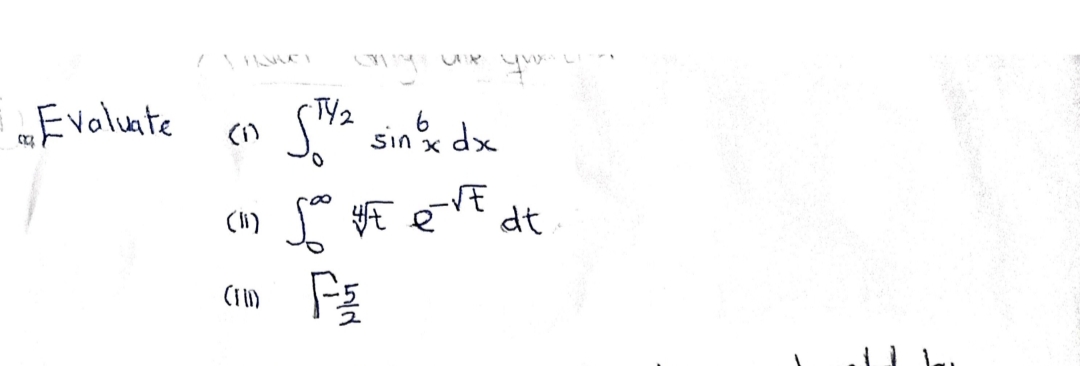 Evaluate (i) ∫₀^(π/2) sin⁶x dx
(ii) ∫₀^∞ ∜t e^(-√t) dt
(iii) Γ-5/2